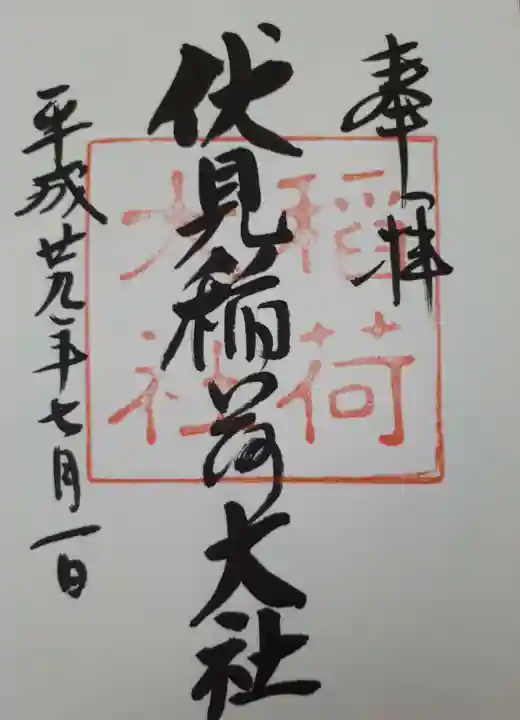 奉拝
伏見稲荷大社
平成廿九年七月一日
稲荷
大社